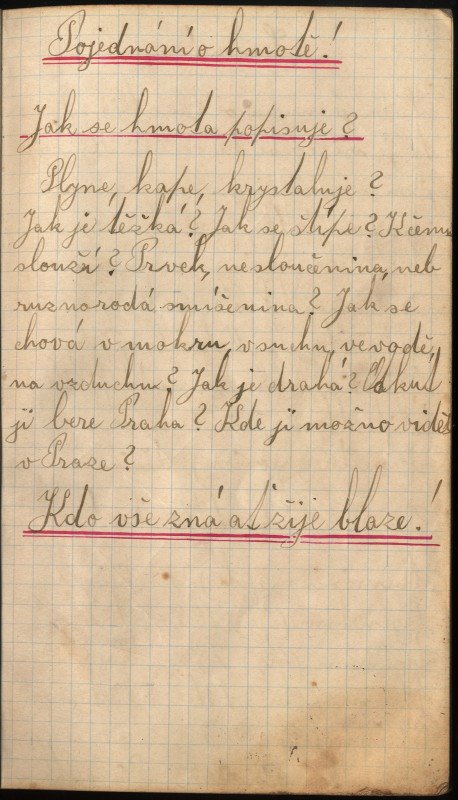 Pojednání o hmotě!
Jak se hmota popisuje?
Plyne, kape, krystaluje?
Jak je těžká? Jak se štípe? K čemu
slouží? Prvek, nesloučenina, neb
ruznorodá smíšenina? Jak se
chová v mokru, v suchu, ve vodě,
na vzduchu? Jak je drahá? Odkud
ji bere Praha? Kde ji možno viděti
v Praze?
Kdo vše zná ať žije blaze!